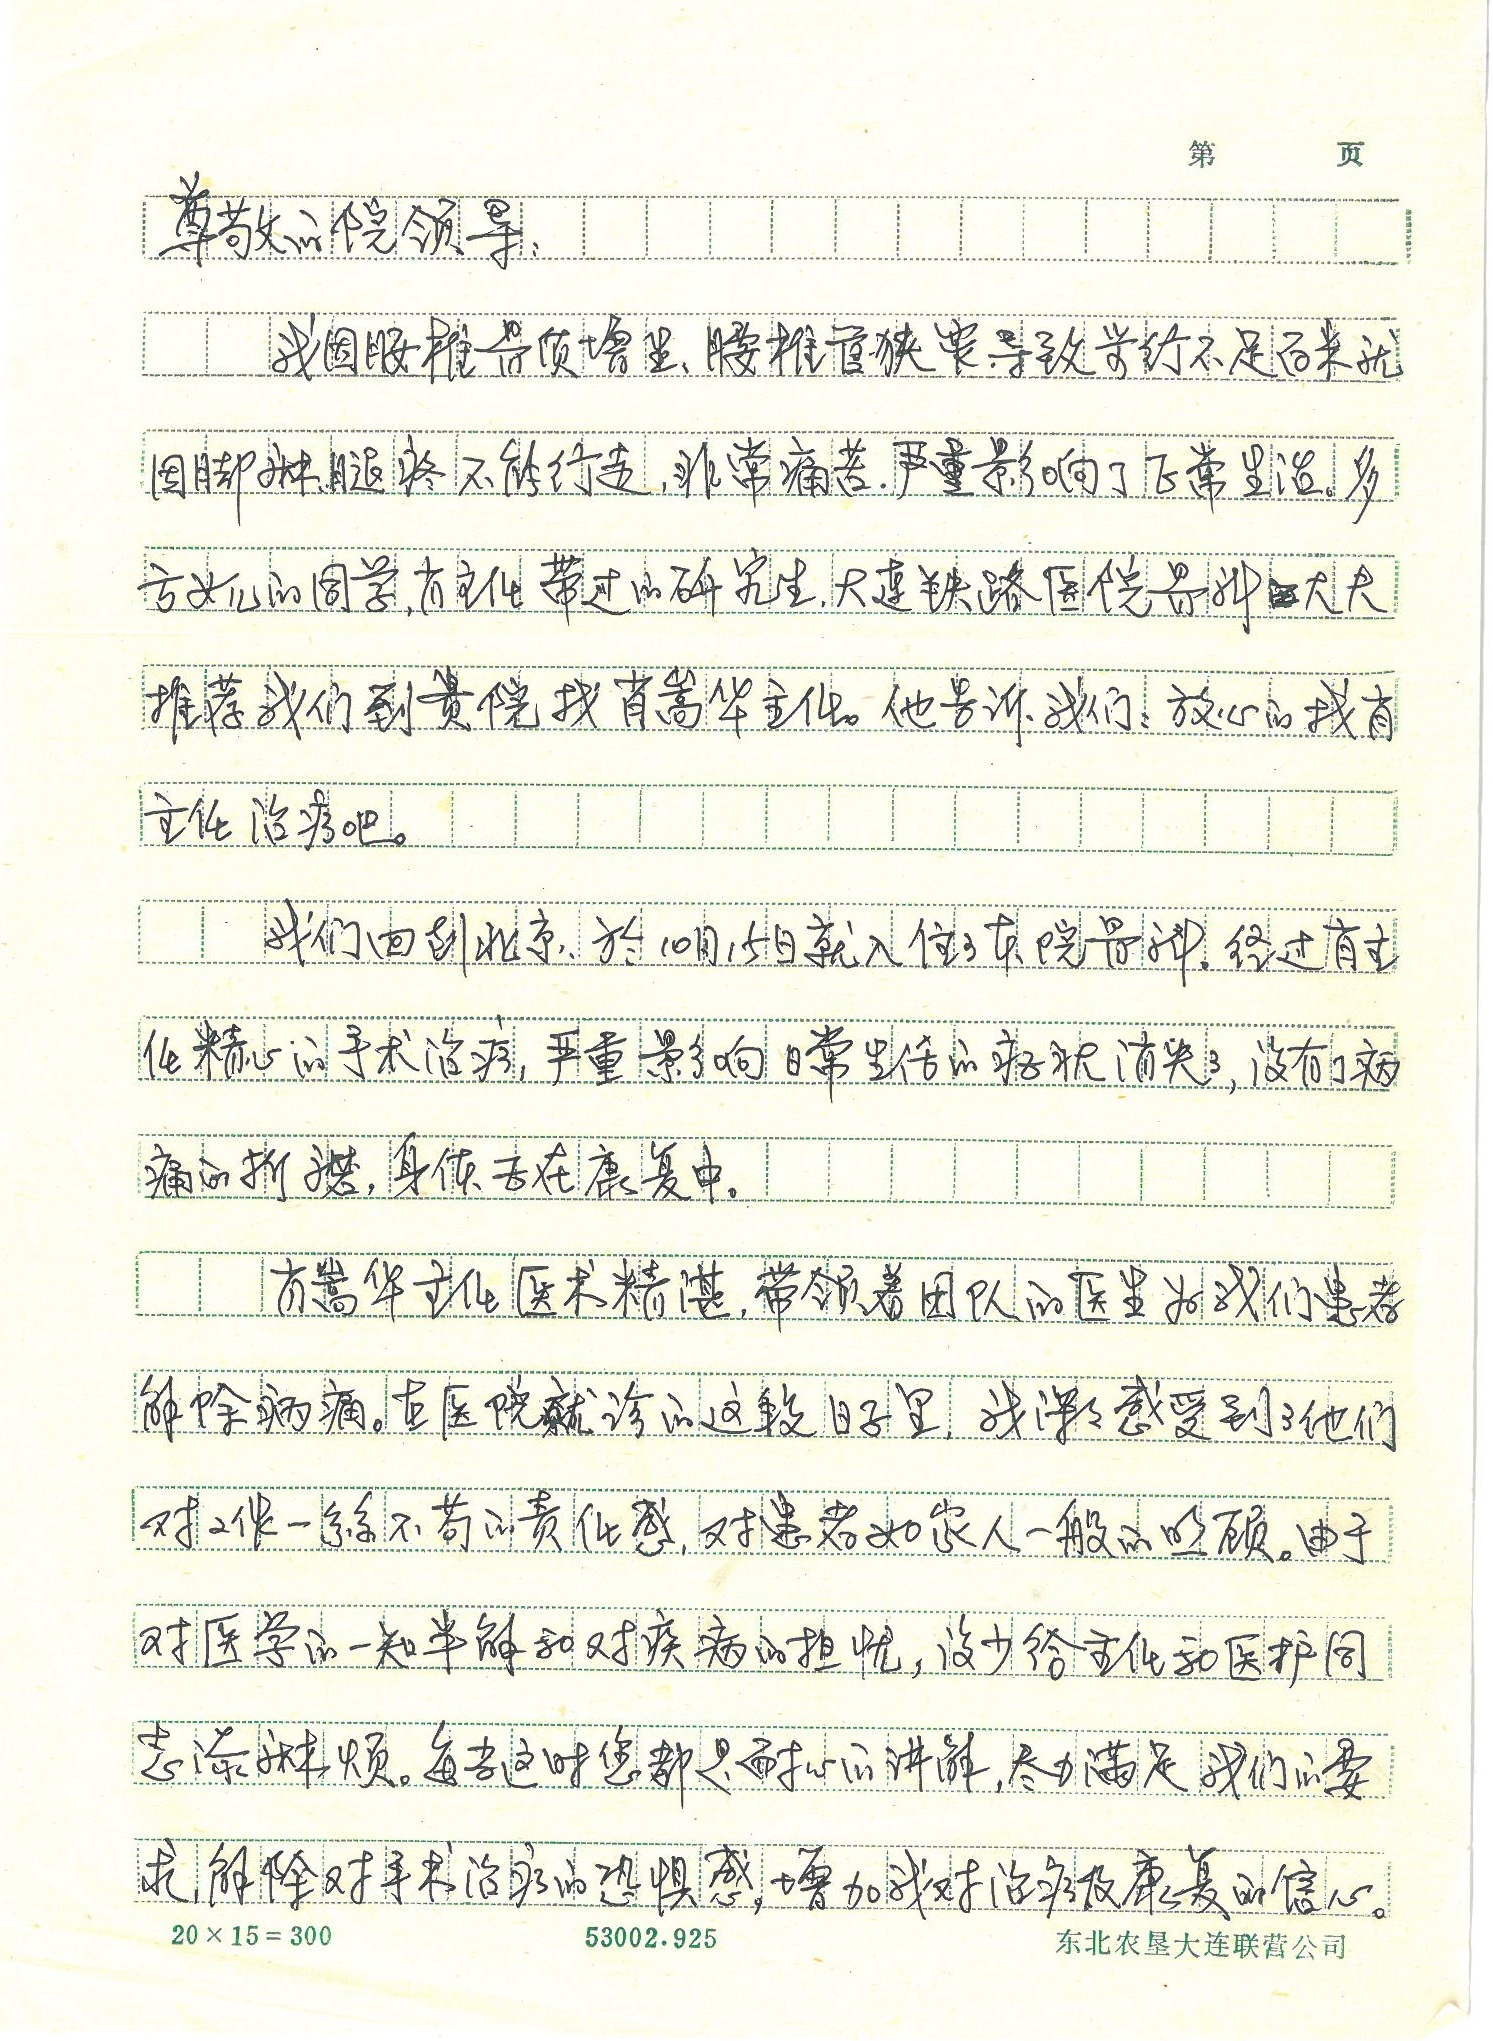 第 页
尊敬的院领导:
我因腰椎骨质增生、腰椎管狭窄导致步行不足百米就
因脚麻、腿疼不能行走,非常痛苦.严重影响了正常生活。多
方女儿的同学,肖主任带过的研究生,大连铁路医院骨科大夫
推荐我们到贵院找肖嵩华主任。他告诉我们:放心的找肖
主任治疗吧。
我们回到北京,於10月15日就入住了本院骨科。经过肖主
任精心的手术治疗,严重影响日常生活的症状消失了,没有了病
痛的折磨,身体正在康复中。
肖嵩华主任医术精湛,带领着团队的医生为我们患者
解除病痛。在医院就诊的这段日子里,我深深感受到了他们
对工作一丝不苟的责任感,对患者如家人一般的照顾。由于
对医学的一知半解和对疾病的担忧,没少给主任和医护同
志添麻烦。每当这时您都是耐心的讲解,尽力满足我们的要
求,解除对手术治疗的恐惧感,增加我对治疗及康复的信心。
20×15=300 53002.925 东北农垦大连联营公司